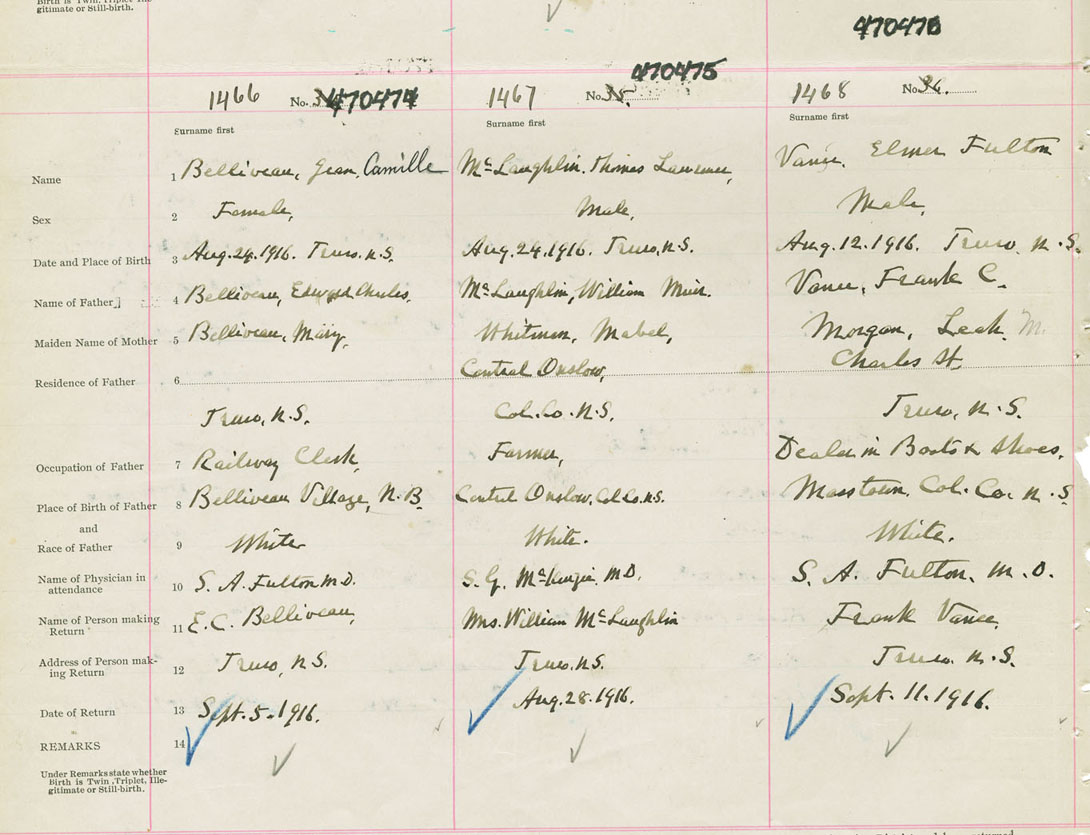 Birth is Twin, Triplet, Ille-
gitimate or Still-birth.
470476
470475
1466 No. 470474 1467 No. 35. 1468 No. 36.
Surname first Surname first Surname first
Name 1 Belliveau, Jean, Camille McLaughlin, Thomas Lawrence, Vance, Elmer Fulton
Sex 2 Female, Male, Male,
Date and Place of Birth 3 Aug. 29. 1916. Truro. N.S. Aug. 24. 1916. Truro, N.S. Aug. 12. 1916. Truro, N.S.
Name of Father 4 Belliveau, Edward Charles, McLaughlin, William Muir. Vance, Frank C.
Maiden Name of Mother 5 Belliveau, Mary, Whitman, Mabel, Morgan, Leah M.
Residence of Father 6 Central Onslow, Charles St.
Truro, N.S. Col. Co. N.S, Truro, N.S.
Occupation of Father 7 Railway Clerk, Farmer, Dealer in Boots & Shoes,
Place of Birth of Father 8 Belliveau Village, N.B. Central Onslow, Col Co. N.S. Masstown, Col. Co. N.S
and
Race of Father 9 White White. White.
Name of Physician in
attendance 10 S. A. Fulton M.D. S. G. McKenzie, M.D. S. A. Fulton, M.D.
Name of Person making
Return 11 E.C. Belliveau, Mrs. William McLaughlin Frank Vance,
Address of Person mak-
ing Return 12 Truro, N.S. Truro, N.S. Truro. N.S.
Date of Return 13 Sept. 5. 1916. Aug. 28. 1916. Sept. 11. 1916.
REMARKS 14
Under Remarks state whether
Birth is Twin, Triplet, Ille-
gitimate or Still-birth.